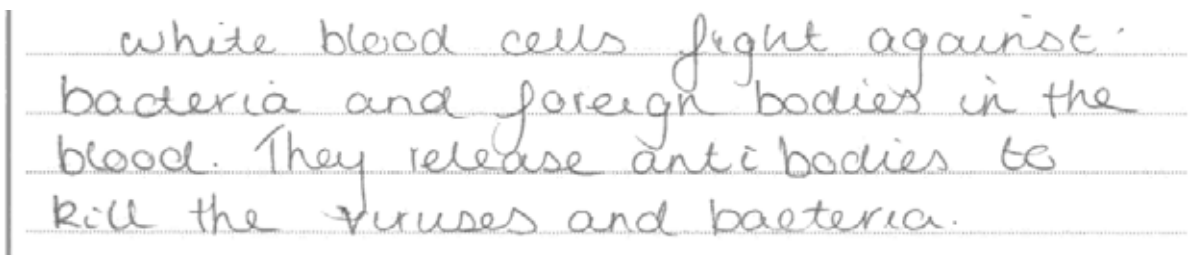 white blood cells fight against
bacteria and foreign bodies in the
blood. They release antibodies to
kill the viruses and bacteria.